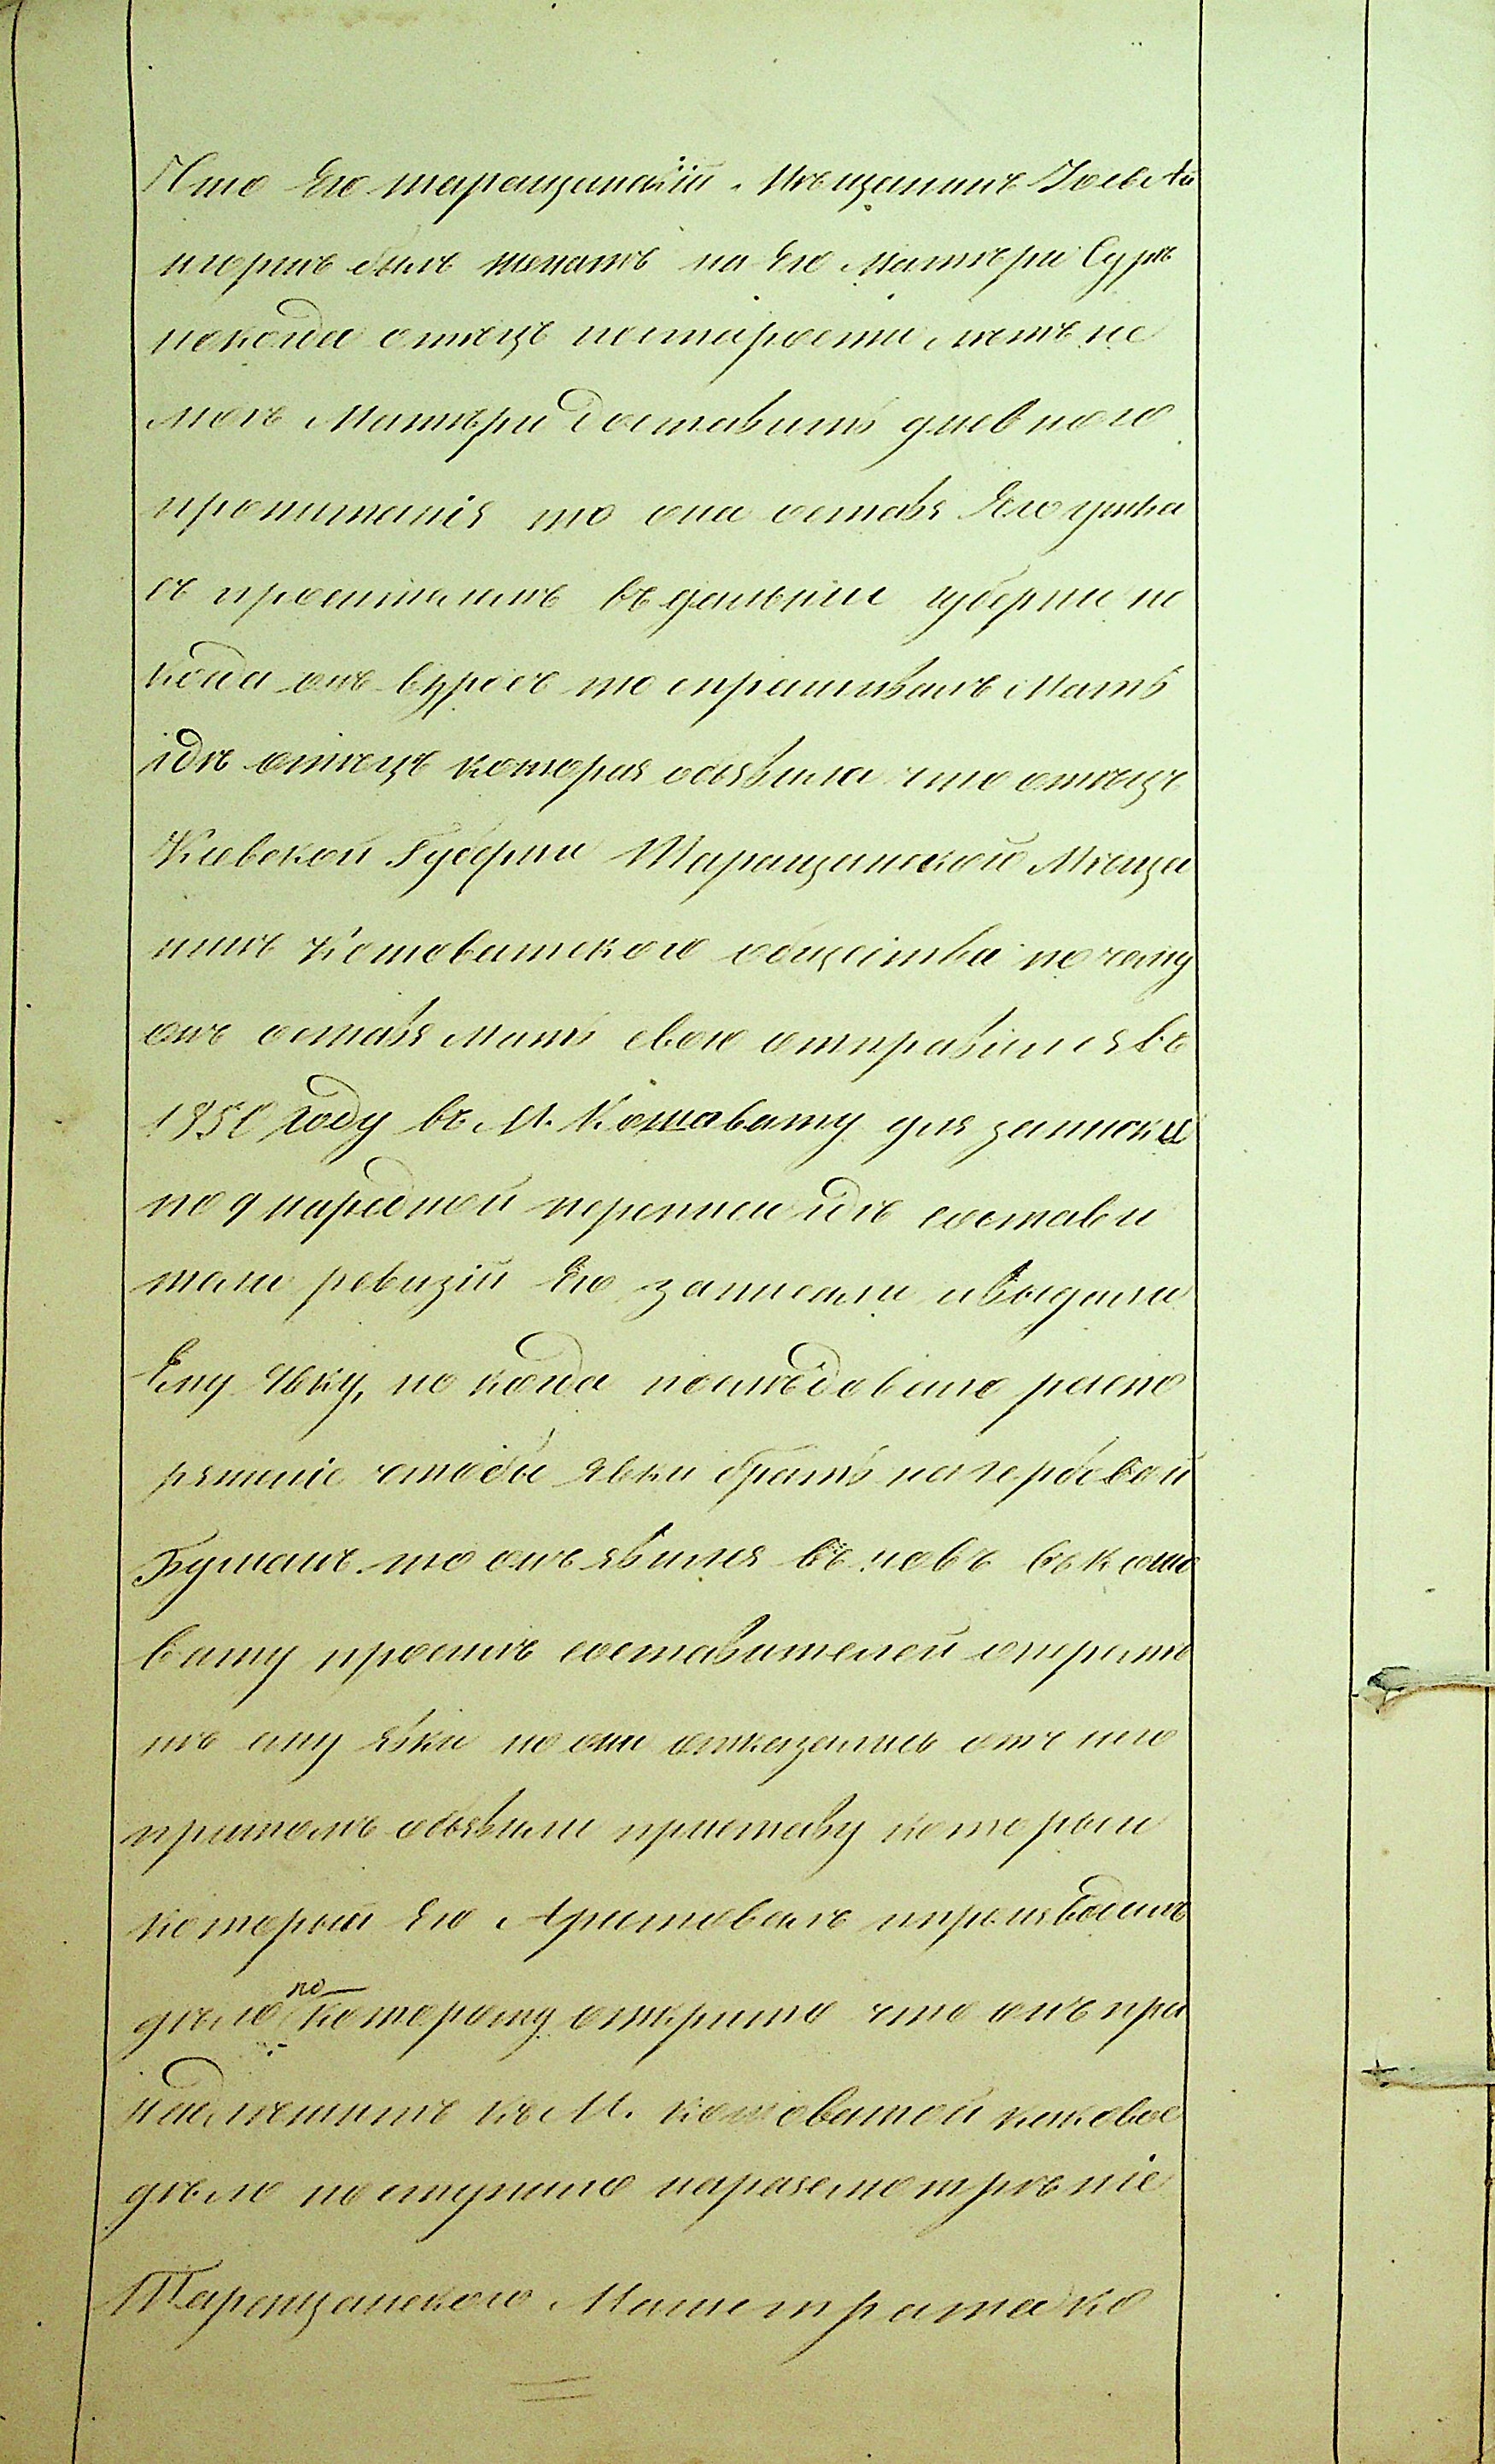 Что Его таращанскій Мѣщанинъ Іось Ли
нгоринъ былъ женатъ на Его Матѣри Сурѣ
ноковда отѣцъ постарости лѣтъ не
могъ Матѣри доставить дневного
пропитанія то она оставя Его ушла
съ просителемъ въ дальніи губерни но
ковда онъ взросъ то спрашивалъ Мать
гдѣ отѣцъ которая обьявила что отѣцъ
Кіевской Губерни Таращанской Мѣща
нинъ Котоватского общества почему
онъ оставя Мать свою отправился въ
1850 году въ М. Кошавату для записки
по 9 народной переписи гдѣ состави
тели ревизій Его записали и выдали
Ему Явку, но ковда послѣдовало распо
ряженіе чтобы явки брать нагербовой
Бумагѣ то онъ явился въ новъ въ Кошо
вату просилъ составителей опредѣ
лѣ ему явки но они отказались отъ него
притомъ обьявили приставу которыи
который Его Аристовалъ производилъ
дѣло по которому открито что онъ при
надлежитъ къ М. Кошоватой каковое
дѣло поступило наразсмотрѣніе
Таращанского Магистрата ко